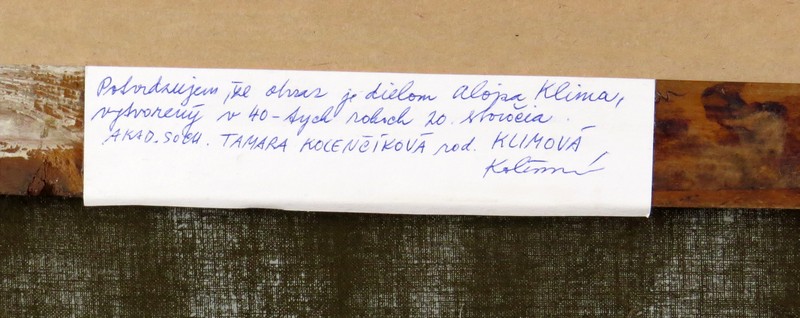 Potvrdzujem, že obraz je dielom Alojza Klima,
vytvorený v 40-tych rokoch 20. storočia.
AKAD. SOCH. TAMARA KOLENČÍKOVÁ rod. KLIMOVÁ